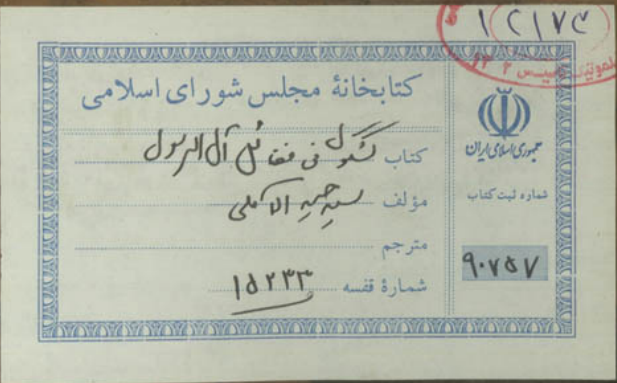 ۱۲۱۷۴
کتابخانهٔ مجلس شورای اسلامی
جمهوری اسلامی ایران
کتاب کشکول فی فضائل آل الرسول
مؤلف سید حیدر الآملی
مترجم
شمارهٔ قفسه ۱۵۲۳۳
شماره ثبت کتاب
۹۰۷۵۷